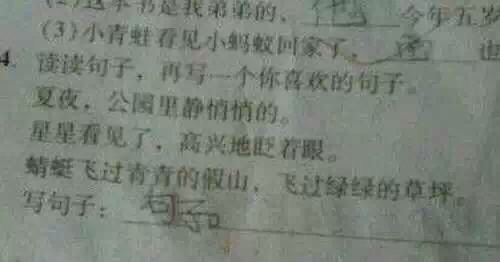 (2)这本书是我弟弟的、他 今年五岁
(3)小青蛙看见小蚂蚁回家了, 也
4. 读读句子，再写一个你喜欢的句子。
夏夜，公园里静悄悄的。
星星看见了，高兴地眨着眼。
蜻蜓飞过青青的假山，飞过绿绿的草坪。
写句子：句子